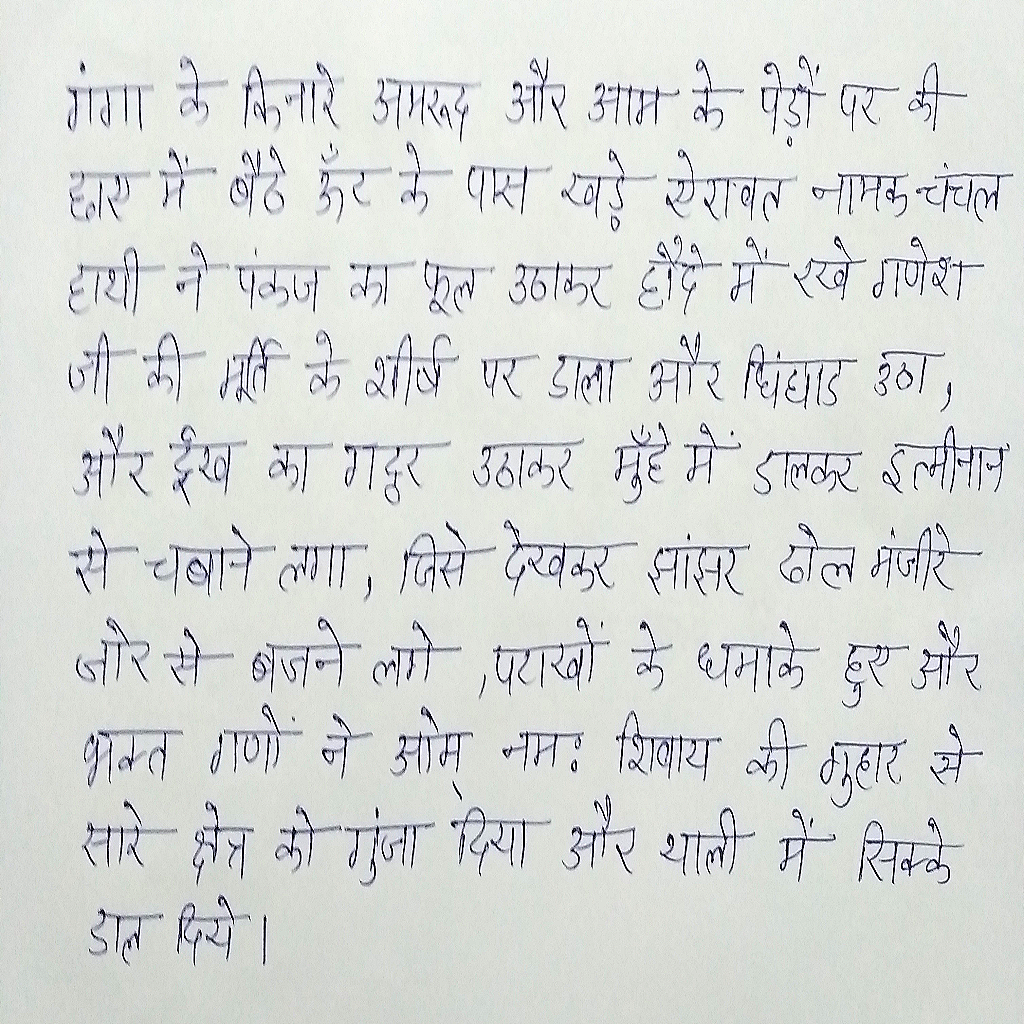 गंगा के किनारे अमरूद और आम के पेड़ों पर की
छाए में बैठे ऊँट के पास खड़े ऐरावत नामक चंचल
हाथी ने पंकज का फूल उठाकर हौदे में रखे गणेश
जी की मूर्ति के शीर्ष पर डाला और चिंघाड उठा,
और ईख का गट्ठर उठाकर मुँह में डालकर इत्मीनान
से चबाने लगा, जिसे देखकर झांझर ढोल मंजीरे
जोर से बजने लगे ,पटाखों के धमाके हुए और
भक्त गणों ने ओम् नमः शिवाय की गुहार से
सारे क्षेत्र को गुंजा दिया और थाली में सिक्के
डाल दिये।